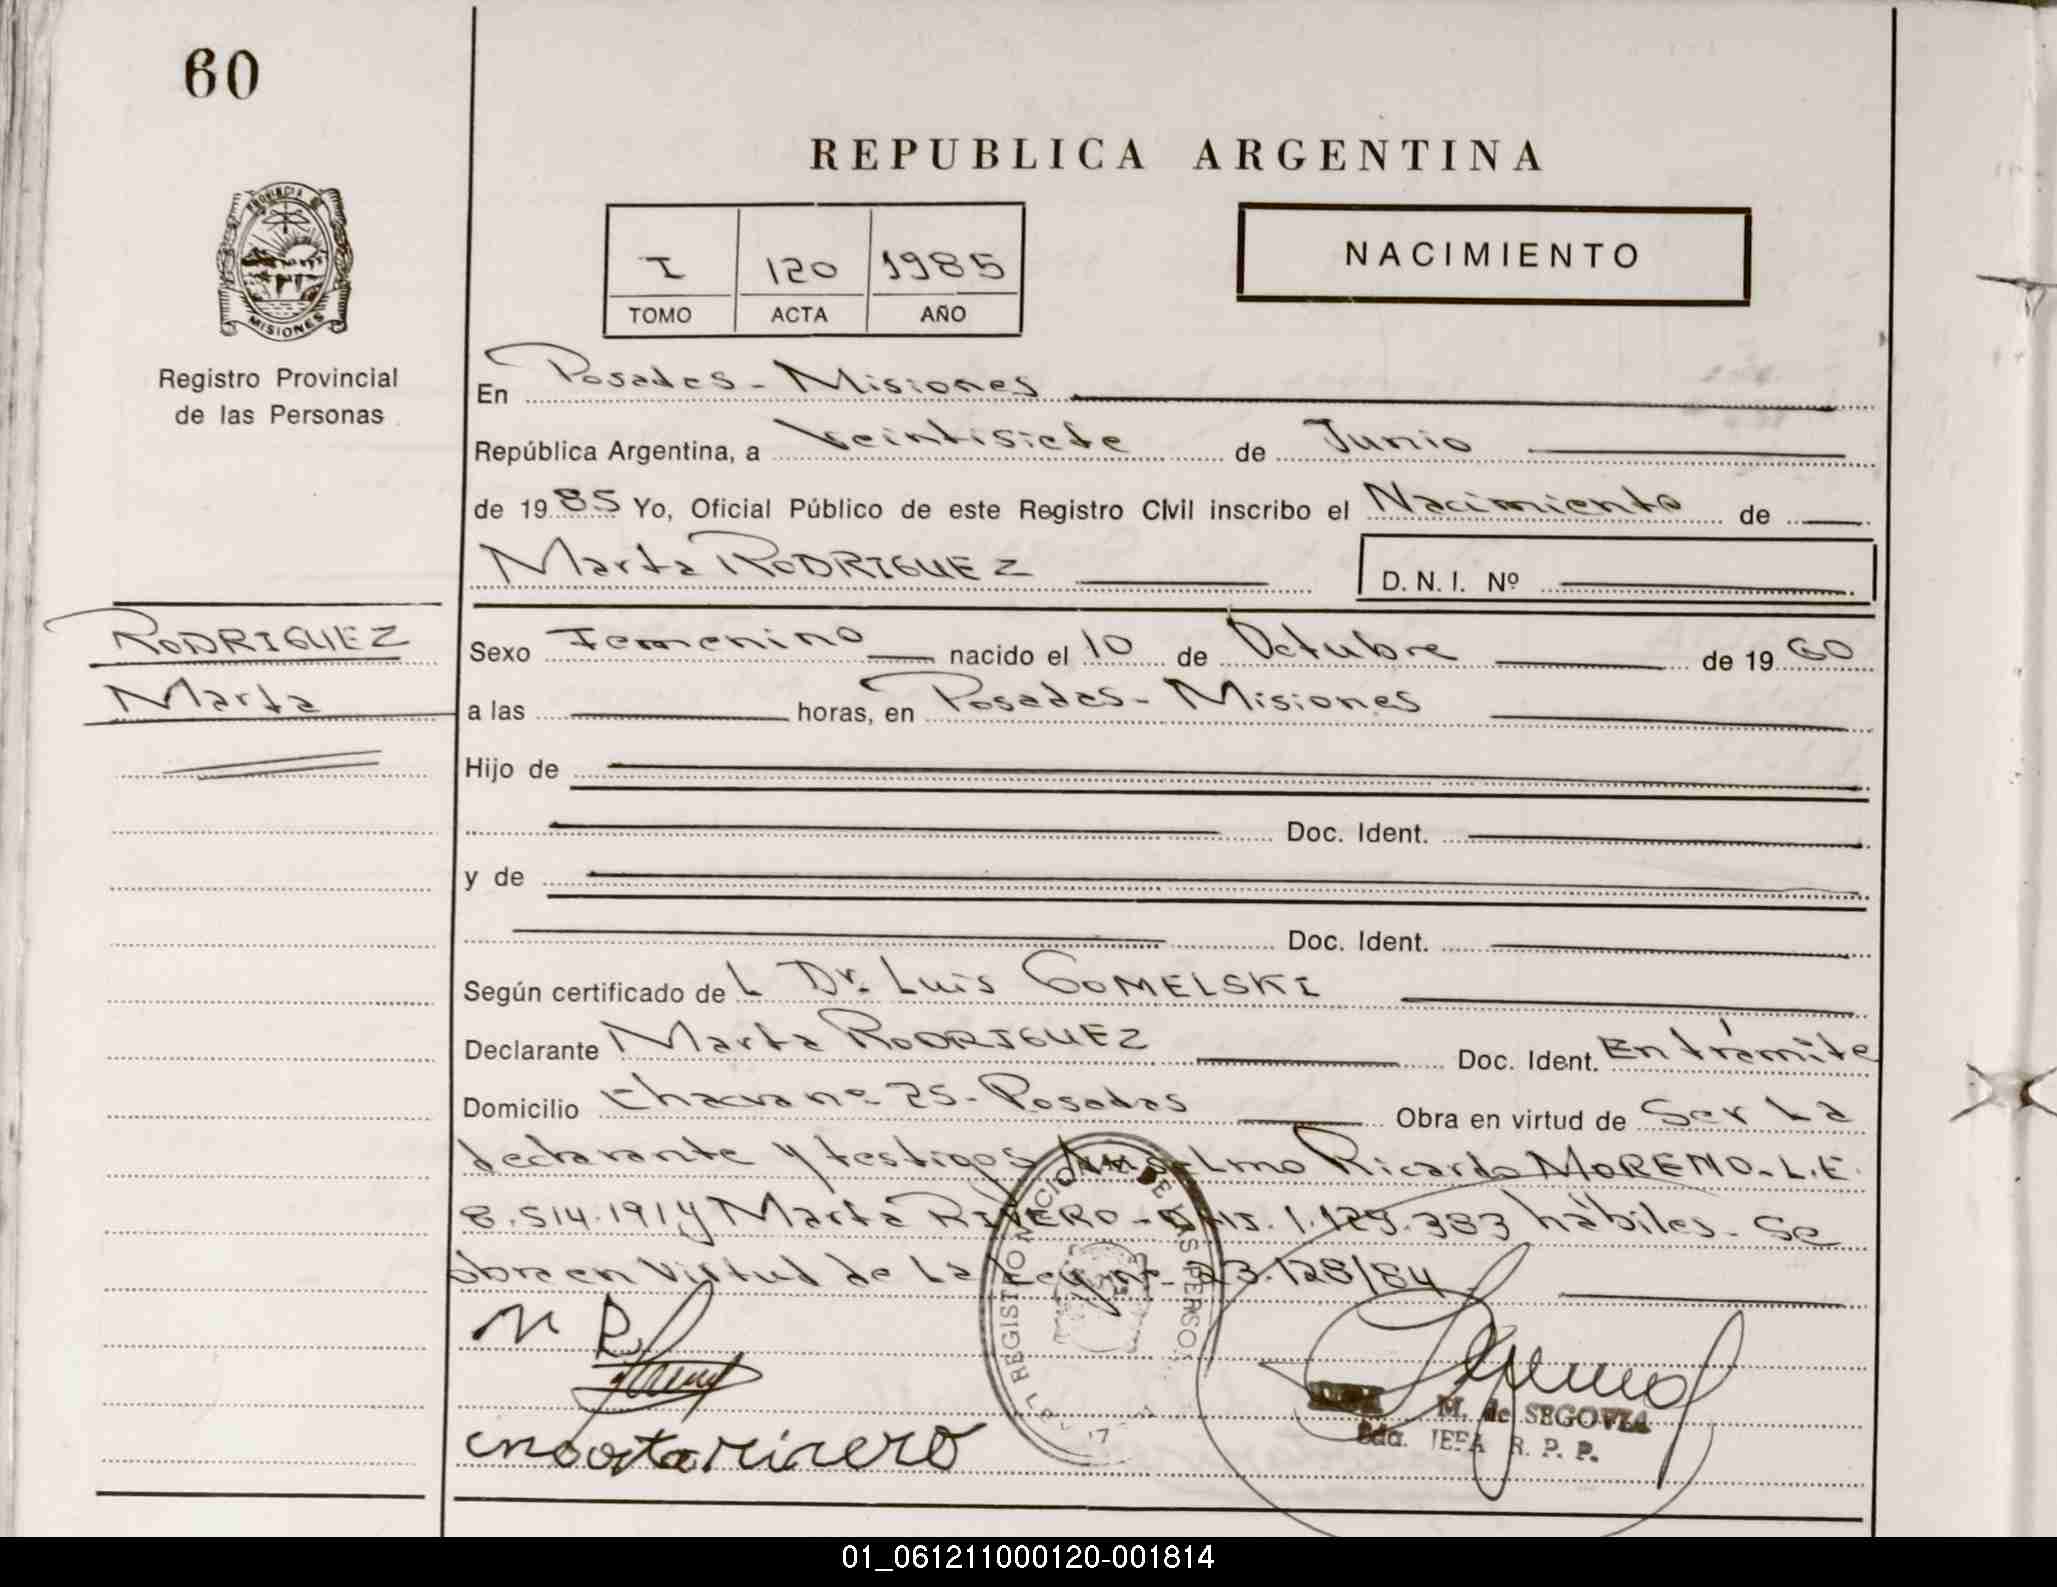 60
REPUBLICA ARGENTINA
I 120 1985
TOMO ACTA AÑO
NACIMIENTO
PROVINCIA DE
MISIONES
Registro Provincial
de las Personas
En Posadas - Misiones
República Argentina, a Veintisiete de Junio
de 1985 Yo, Oficial Público de este Registro Civil inscribo el Nacimiento de
Marta RODRIGUEZ D.N.I. Nº
RODRIGUEZ
Marta
Sexo Femenino nacido el 10 de Octubre de 1960
a las horas, en Posadas - Misiones
Hijo de
Doc. Ident.
y de
Doc. Ident.
Según certificado de L Dr. Luis GOMELSKI
Declarante Marta RODRIGUEZ Doc. Ident. En trámite
Domicilio Chacra nº 25 - Posadas Obra en virtud de Ser La
declarante y testigos Anselmo Ricardo MORENO - L.E.
8.514.191 y Marta RIVERO - 1.129.383 hábiles - Se
obra en virtud de La Ley nº 23.128/84
M R
marta rivero
REGISTRO NACIONAL DE LAS PERSO
M. de SEGOVIA
JEFA R. P. P.
01_061211000120-001814